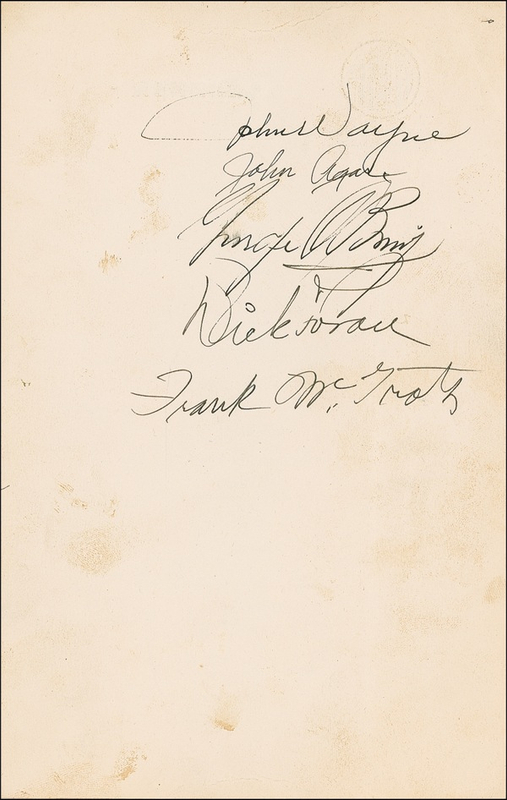 John Wayne
John Agar
George O'Brien
Dick Foran
Frank McGrath